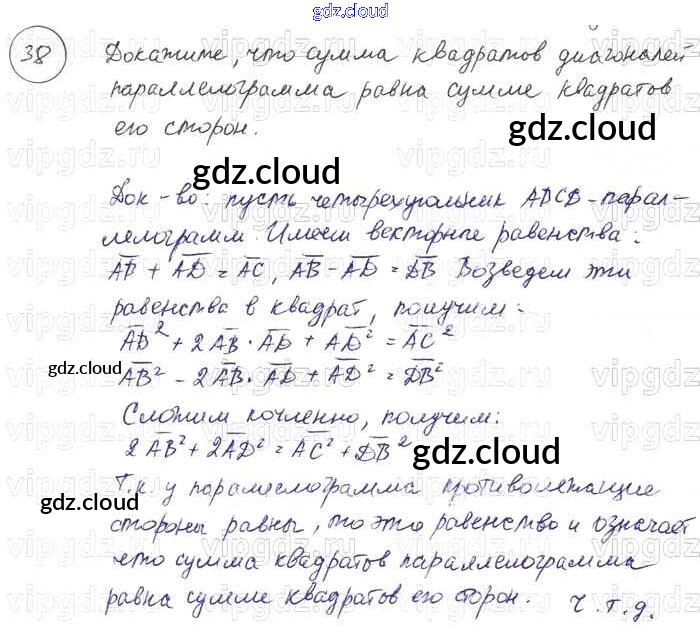 gdz.cloud
38 Докажите, что сумма квадратов диагоналей
параллелограмма равна сумме квадратов
его сторон.
gdz.cloud
gdz.cloud
Док-во: пусть четырехугольник ABCD - парал-
лелограмм. Имеем векторные равенства:
AB + AD = AC, AB - AD = DB Возведем эти
равенства в квадрат, получим:
AB² + 2AB · AD + AD² = AC²
gdz.cloud
AB² - 2AB · AD + AD² = DB²
Сложим почленно, получим:
2AB² + 2AD² = AC² + DB²
gdz.cloud
gdz.cloud
Т.к. у параллелограмма противолежащие
стороны равны, то это равенство и означает
что сумма квадратов параллелограмма
равна сумме квадратов его сторон. Ч.т.д.